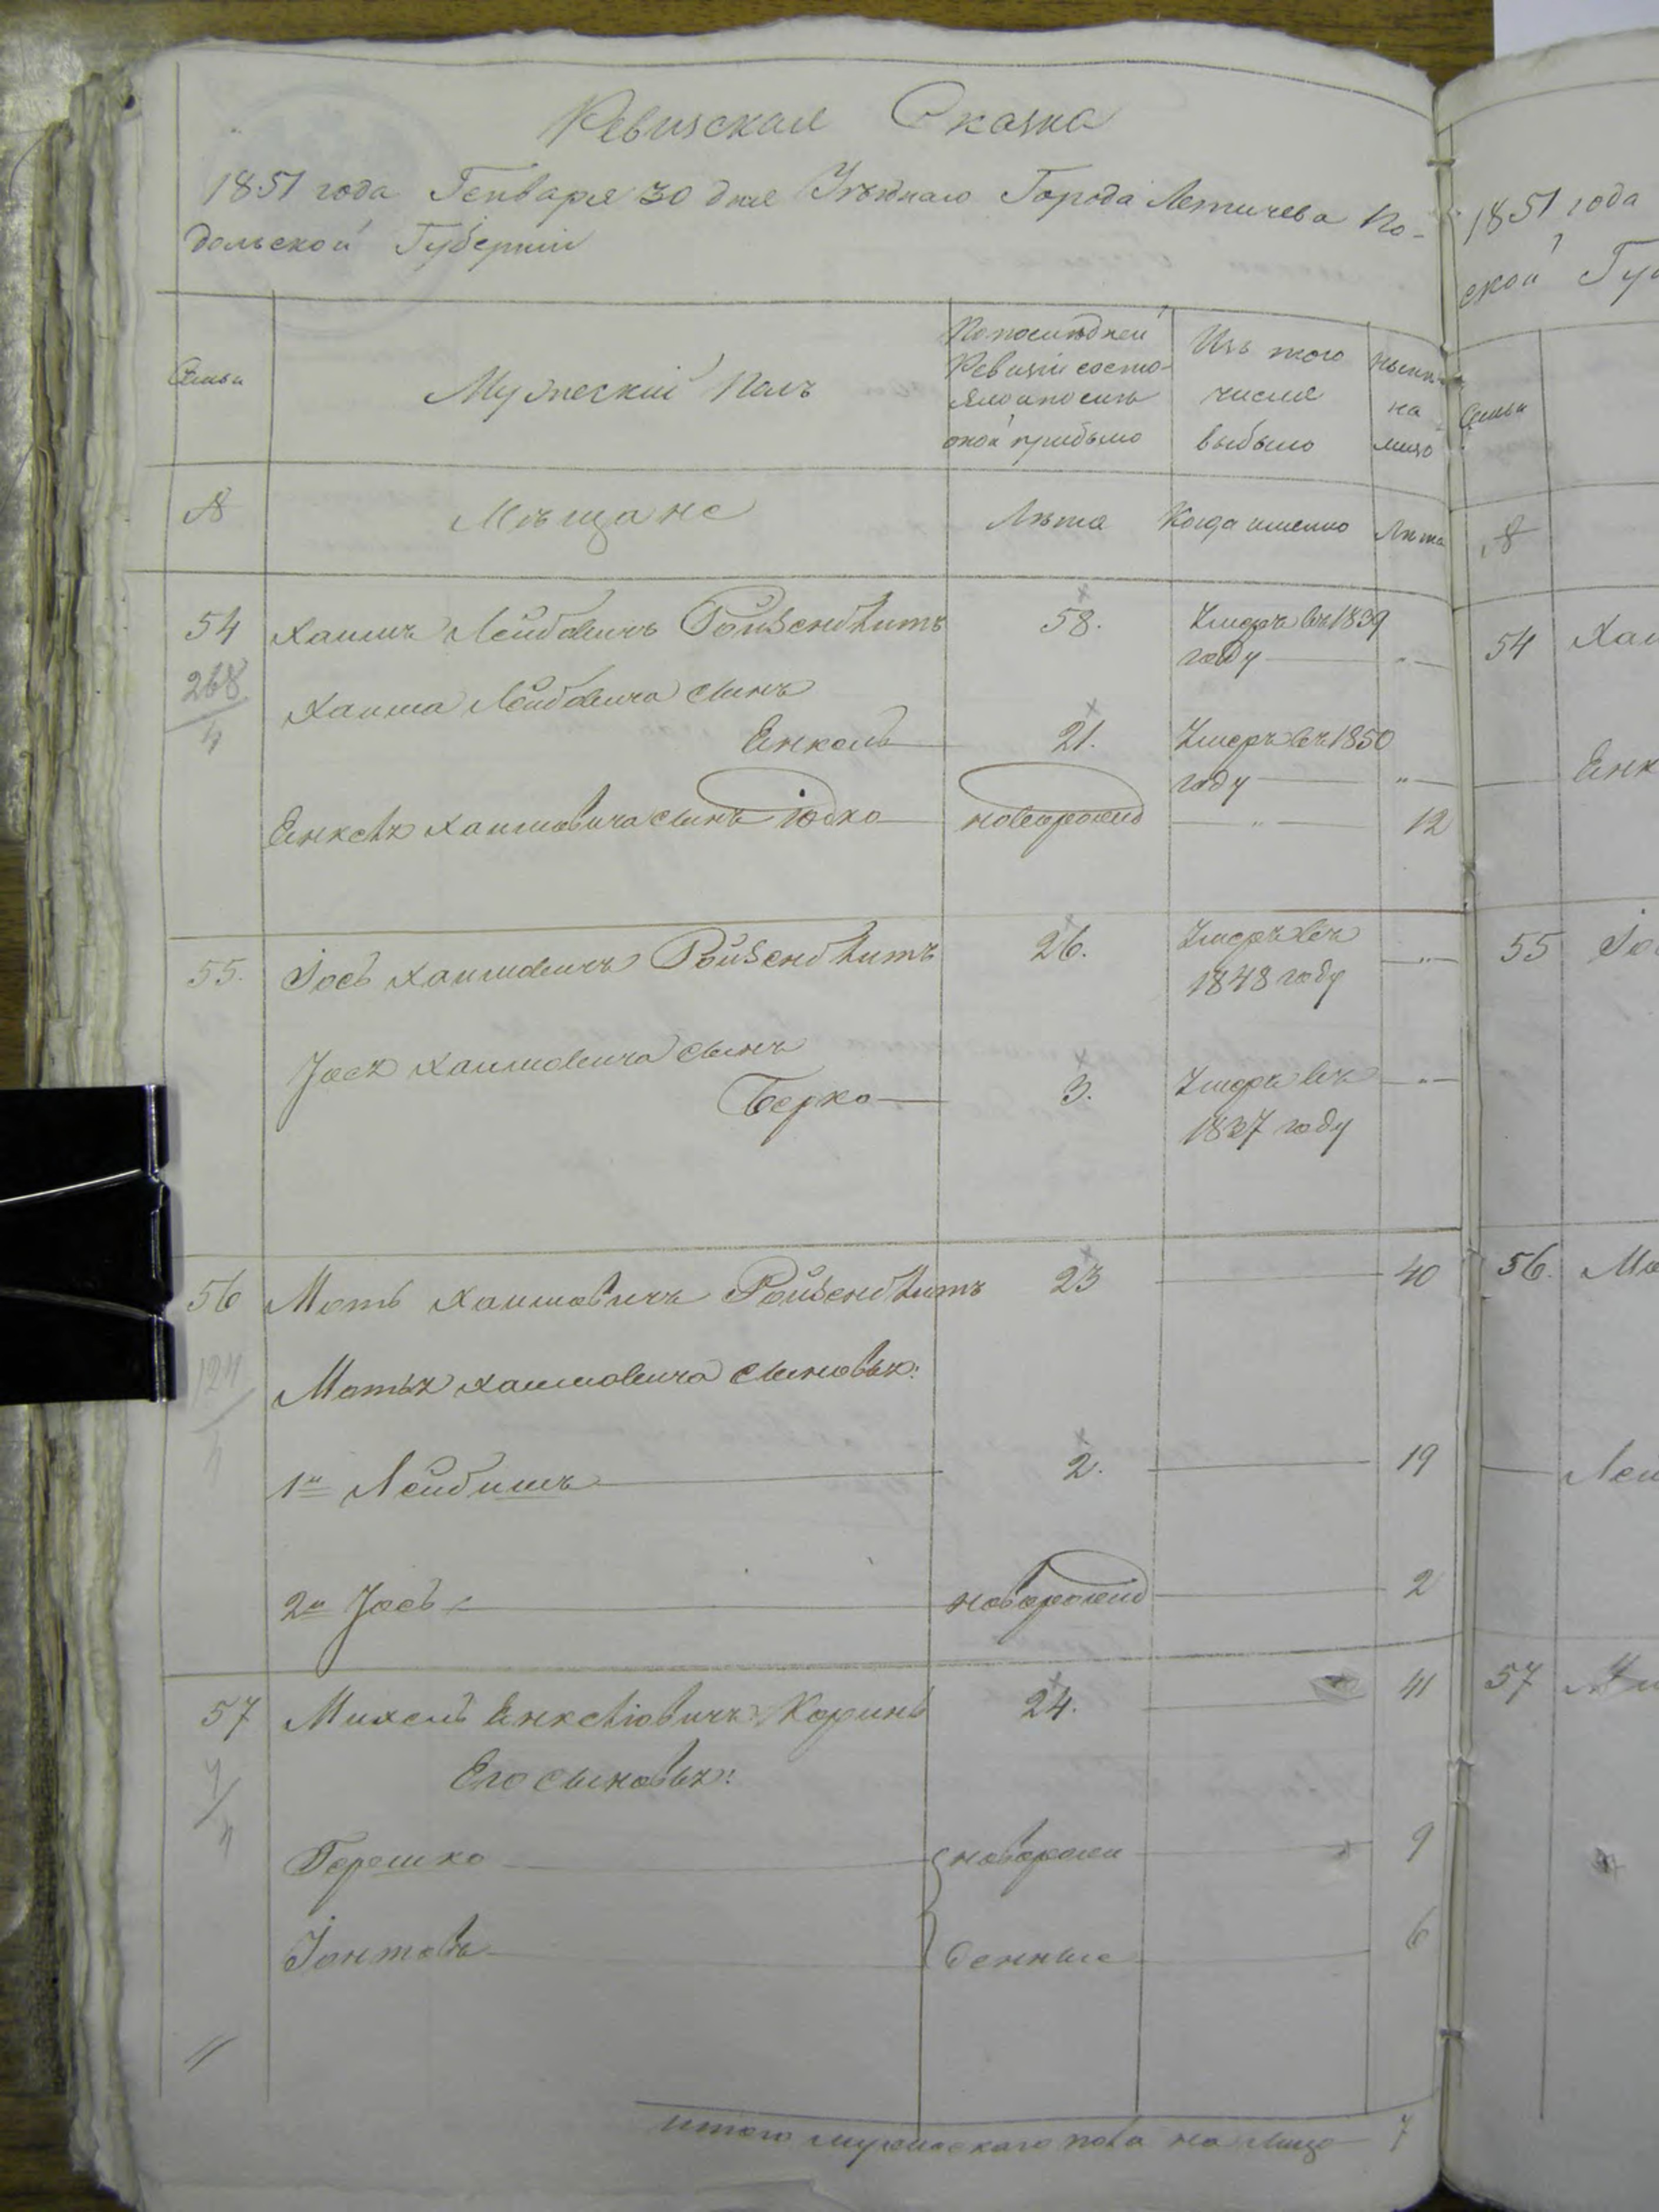 Ревизская Сказка
1851 года Генваря 30 дня Уѣзднаго Города Летичева По-
дольской Губерніи
Семьи
Мужескій Полъ
По последней
Ревизіи состо-
яло и послѣ
оной прибыло
Изъ того
числа
выбыло
Нынѣ
на
лицо
№
Мѣщане
Лѣта
Когда именно
Лѣта
54
Хаимъ Лейбовичъ Ройзенблитъ
58.
Умеръ въ 1839
году
268
4
Хаима Лейбовича сынъ
Енкель
21.
Умеръ въ 1850
году
Енкеля Хаимовича сынъ Юдко
новорожд
12
55.
Іось Хаимовичъ Ройзенблитъ
26.
Умеръ въ
1848 году
Іося Хаимовича сынъ
Берко
3.
Умеръ въ
1837 году
56
Моть Хаимовичъ Ройзенблитъ
23
40
124
4
Мотя Хаимовича сыновья:
1й Лейбишъ
2.
19
2й Іось
новорожд
2
57
Михель Енкелювичъ Коринь
24.
41
Его сыновья:
4
Гершко
новорож
9
Іонтовъ
денные
6
итого мужескаго пола на лицо 7
1851 года
ской Гу
Семьи
№
54 Хаи
Енк
55 Іо
56. Мо
Леи
57 Ми